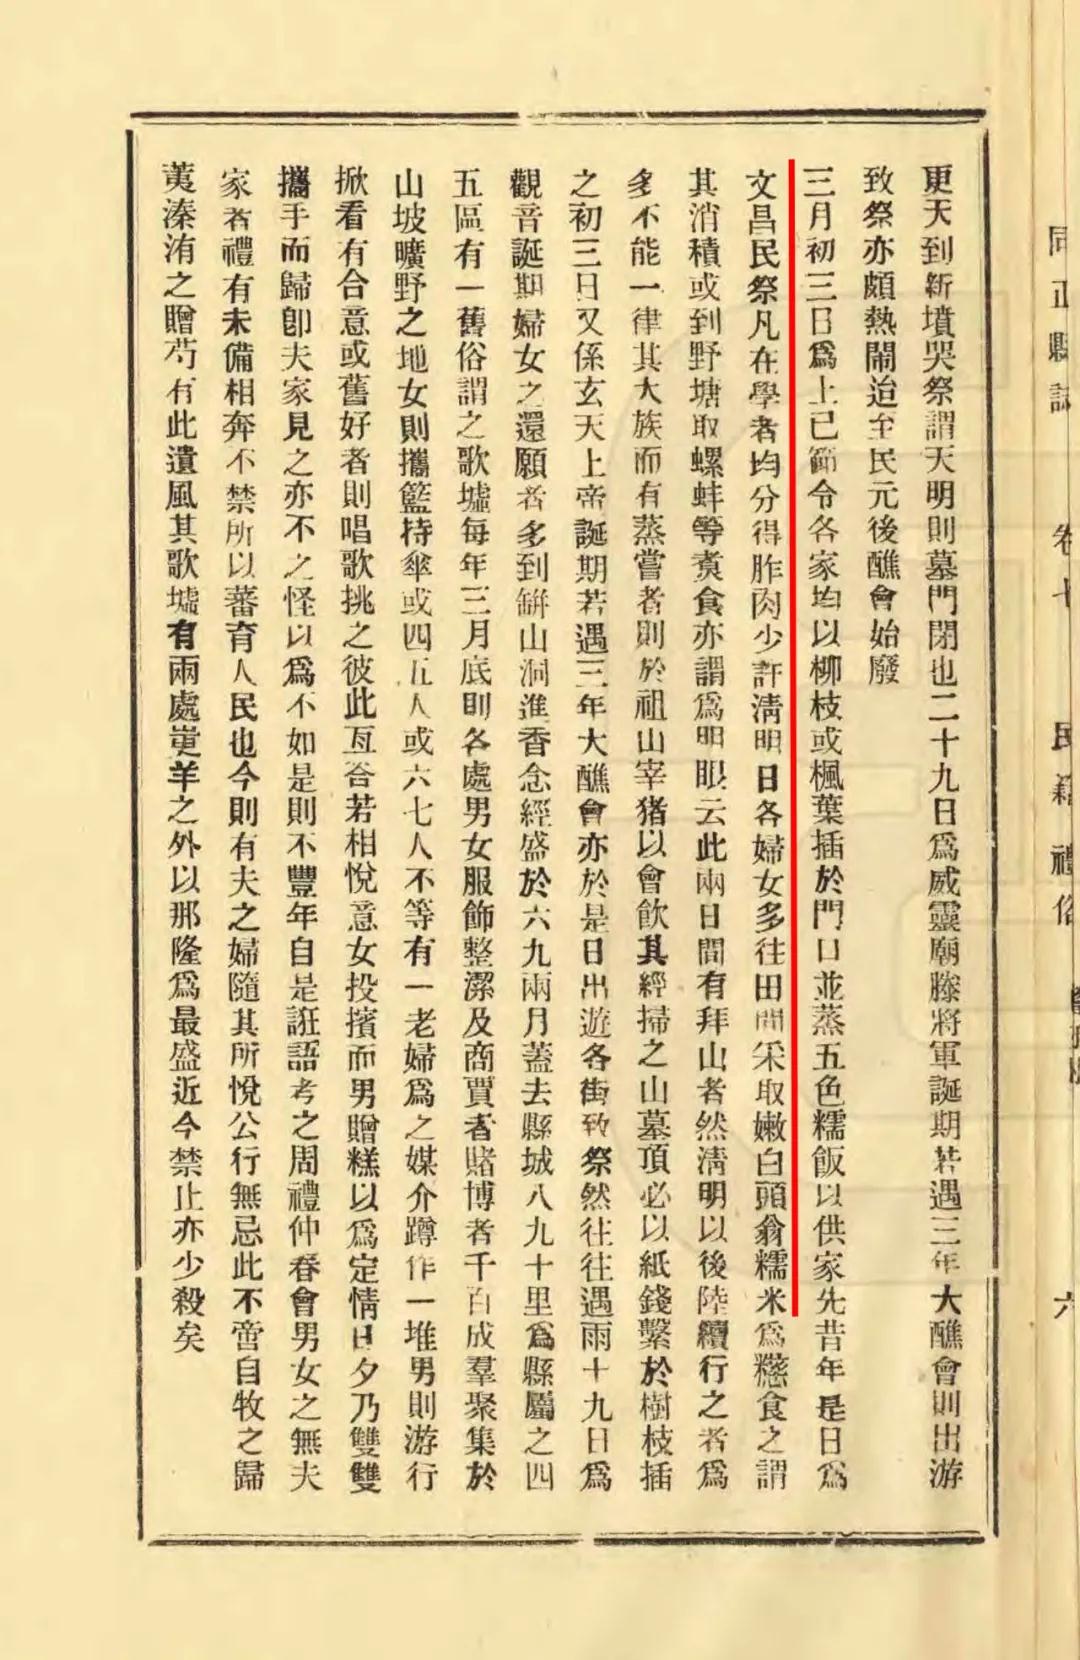 更天到新墳哭祭謂天明則墓門閉也二十九日爲威靈廟滕將軍誕期若遇三年大醮會則出游
致祭亦頗熱鬧迨至民元後醮會始廢
三月初三日爲上巳節令各家均以柳枝或楓葉插於門口並蒸五色糯飯以供家先昔年是日爲
文昌民祭凡在學者均分得胙肉少許淸明日各婦女多往田間采取嫩白頭翁糯米爲糍食之謂
其消積或到野塘取螺蚌等煑食亦謂爲明眼云此兩日間有拜山者然淸明以後陸續行之者爲
多不能一律其大族而有蒸嘗者則於祖山宰猪以會飮其經掃之山墓頂必以紙錢繫於樹枝插
之初三日又係玄天上帝誕期若遇三年大醮會亦於是日出遊各街致祭然往往遇雨十九日爲
觀音誕期婦女之還願者多到山洞進香念經盛於六九兩月蓋去縣城八九十里爲縣屬之四
五區有一舊俗謂之歌墟每年三月底則各處男女服飾整潔及商賈者賭博者千百成羣聚集於
山坡曠野之地女則攜籃持傘或四五人或六七人不等有一老婦爲之媒介蹲作一堆男則游行
掀看有合意或舊好者則唱歌挑之彼此互答若相悅意女投擯而男贈糕以爲定情日夕乃雙雙
攜手而歸卽夫家見之亦不之怪以爲不如是則不豐年自是誑語考之周禮仲春會男女之無夫
家者禮有未備相奔不禁所以蕃育人民也今則有夫之婦隨其所悅公行無忌此不啻自牧之歸
荑溱洧之贈芍有此遺風其歌墟有兩處羊之外以那隆爲最盛近今禁止亦少殺矣
同正縣誌
卷七
民籍禮俗
六